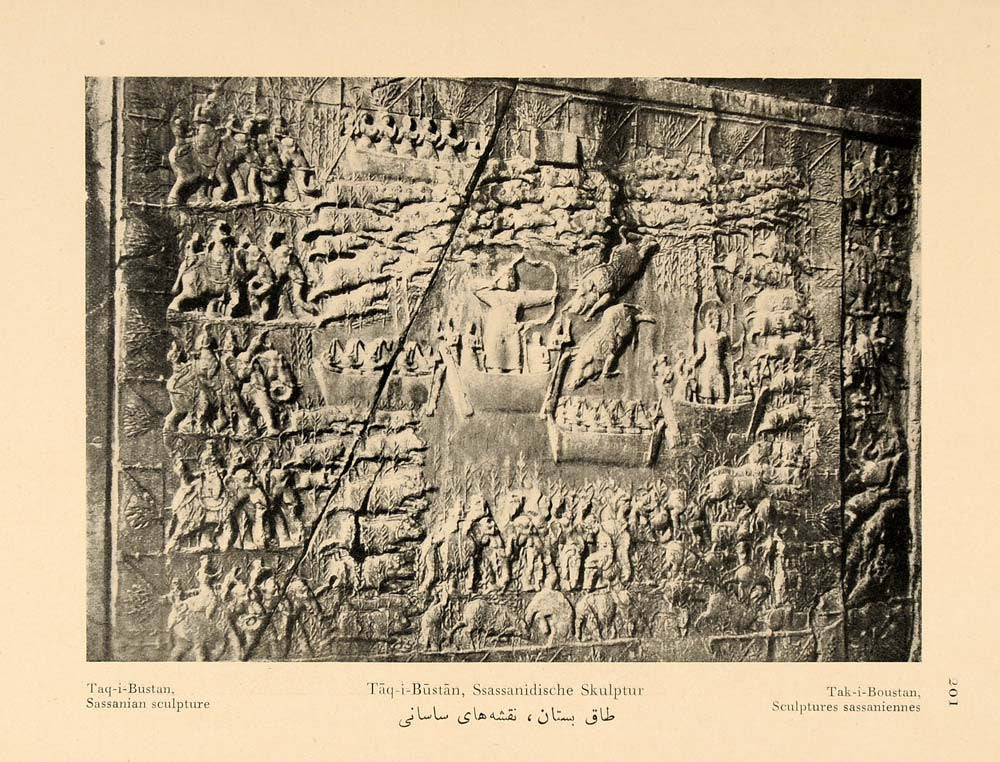 Taq-i-Bustan,
Sassanian sculpture
Tāq-i-Būstān, Ssassanidische Skulptur
طاق بستان، نقشه‌های ساسانی
Tak-i-Boustan,
Sculptures sassaniennes
201